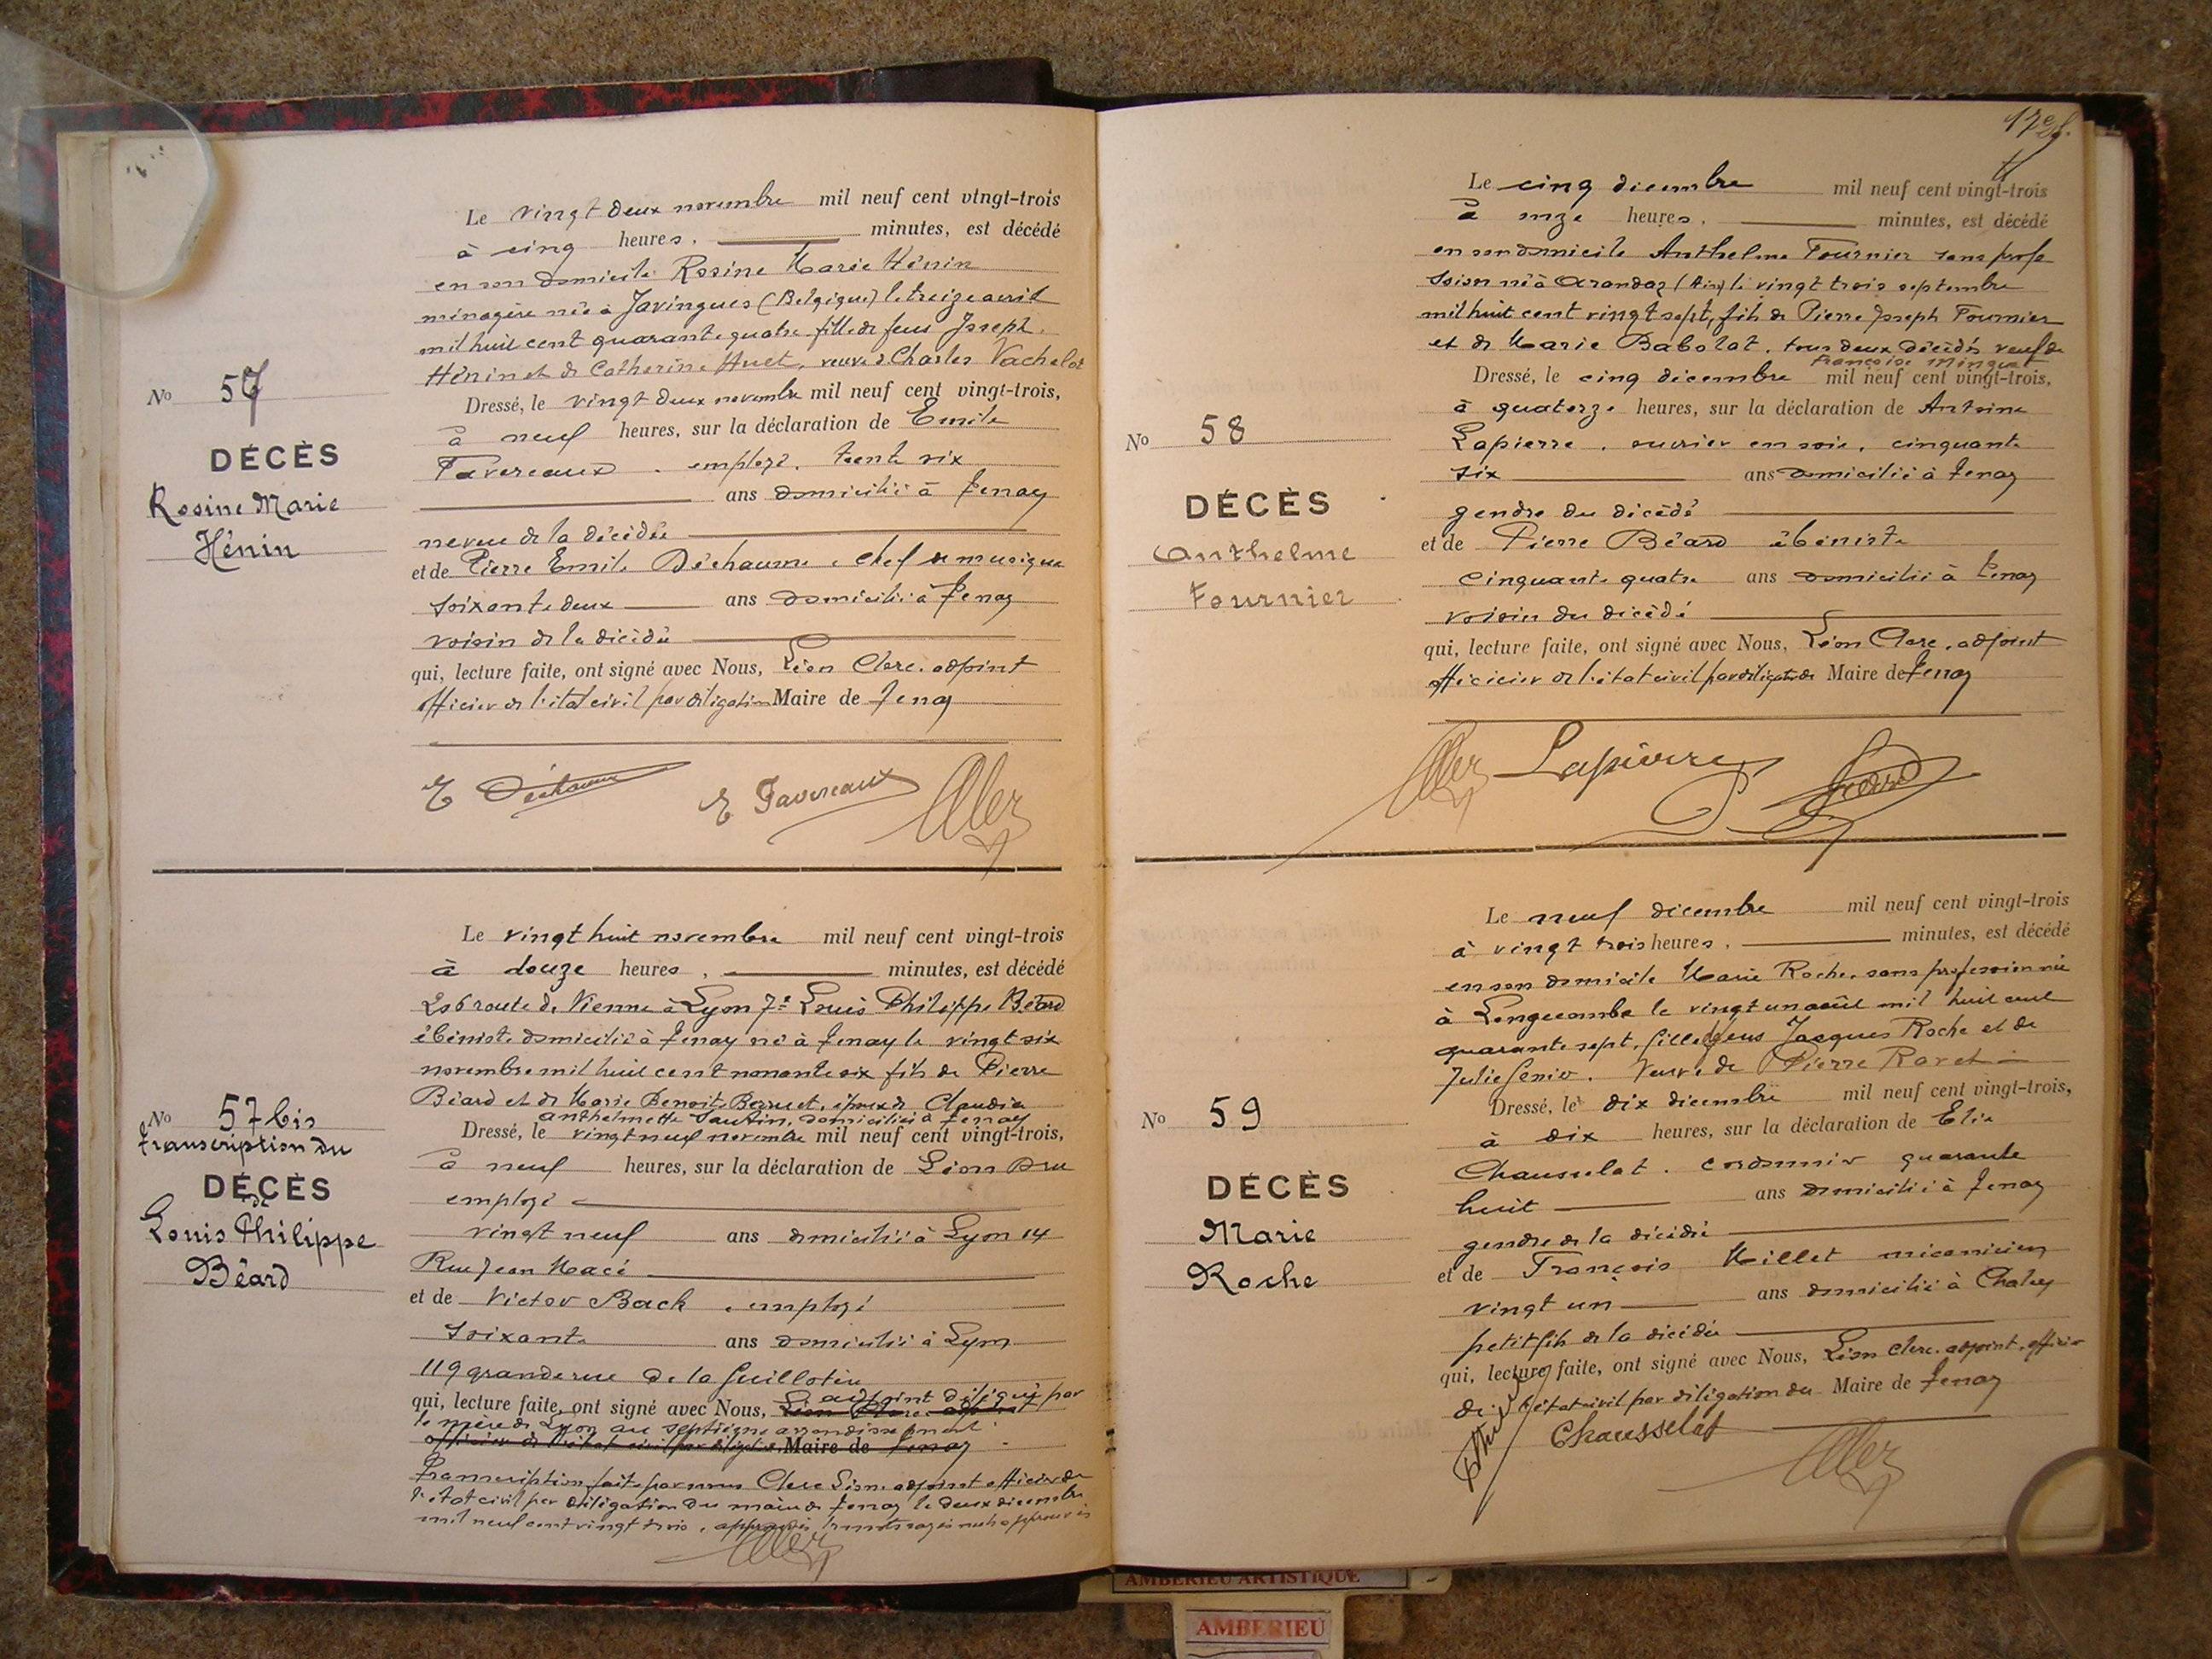 Le vingt deux novembre mil neuf cent vingt-trois
à cinq heures, minutes, est décédé
en son domicile Rosine Marie Hénin
ménagère née à Javingues (Belgique) le treize avril
mil huit cent quarante quatre fille de feus Joseph
Hénin et de Catherine Huet, veuve de Charles Vachelot
No 57
DÉCÈS
Rosine Marie
Hénin
Dressé, le vingt deux novembre mil neuf cent vingt-trois,
à neuf heures, sur la déclaration de Emile
Favereaux, employé, trente six
ans domicilié à Tenay
neveu de la décédée
et de Pierre Emile Déchaume, chef de musique
soixante deux ans domicilié à Tenay
voisin de la décédée
qui, lecture faite, ont signé avec Nous, Léon Clerc, adjoint
officier de l'état civil par délégation Maire de Tenay
E Favereaux
Le vingt huit novembre mil neuf cent vingt-trois
à douze heures, minutes, est décédé
206 route de Vienne à Lyon 7e Louis Philippe Béard
ébéniste domicilié à Tenay né à Tenay le vingt six
novembre mil huit cent nonante six fils de Pierre
Béard et de Marie Benoite, époux de Claudia
anthelmette domiciliée à Tenay
No 57 bis
transcription du
DÉCÈS
de
Louis Philippe
Béard
Dressé, le vingt neuf novembre mil neuf cent vingt-trois,
à neuf heures, sur la déclaration de Léon Dru
employé
vingt neuf ans domicilié à Lyon 14
Rue Jean Macé
et de Victor Bach, employé
soixante ans domicilié à Lyon
119 grande rue de la Guillotière
qui, lecture faite, ont signé avec Nous, Léon Clerc adjoint adjoint délégué par
le maire de Lyon au septième arrondissement
officier de l'état civil par délégation Maire de Tenay
Transcription faite par nous Clerc Léon adjoint officier de
l'état civil par délégation du maire de Tenay le deux décembre
mil neuf cent vingt trois,
17e f.
Le cinq décembre mil neuf cent vingt-trois
à onze heures, minutes, est décédé
en son domicile Anthelme Fournier sans profe
ssion né à Arandas (Ain) le vingt trois septembre
mil huit cent vingt sept, fils de Pierre Joseph Fournier
et de Marie Babolat, tous deux décédés veuf de
Françoise Minguet
No 58
DÉCÈS
Anthelme
Fournier
Dressé, le cinq décembre mil neuf cent vingt-trois,
à quatorze heures, sur la déclaration de Antoine
Lapierre, ouvrier en soie, cinquante
six ans domicilié à Tenay
gendre du décédé
et de Pierre Béard ébéniste
cinquante quatre ans domicilié à Tenay
voisin du décédé
qui, lecture faite, ont signé avec Nous, Léon Clerc, adjoint
officier de l'état civil par délégation de Maire de Tenay
Lapierre
Le neuf décembre mil neuf cent vingt-trois
à vingt trois heures, minutes, est décédé
en son domicile Marie Roche, sans profession née
à Longecombe le vingt un août mil huit cent
quarante sept, fille de feus Jacques Roche et de
Julie Genix. Veuve de Pierre Ravet
No 59
DÉCÈS
Marie
Roche
Dressé, le dix décembre mil neuf cent vingt-trois,
à dix heures, sur la déclaration de Elie
Chausselat, cordonnier quarante
huit ans domicilié à Tenay
gendre de la décédée
et de François Millet mécanicien
vingt un ans domicilié à Chaley
petit fils de la décédée
qui, lecture faite, ont signé avec Nous, Léon Clerc, adjoint, officier
de l'état civil par délégation du Maire de Tenay
Chausselat
AMBERIEU ARTISTIQUE
AMBERIEU